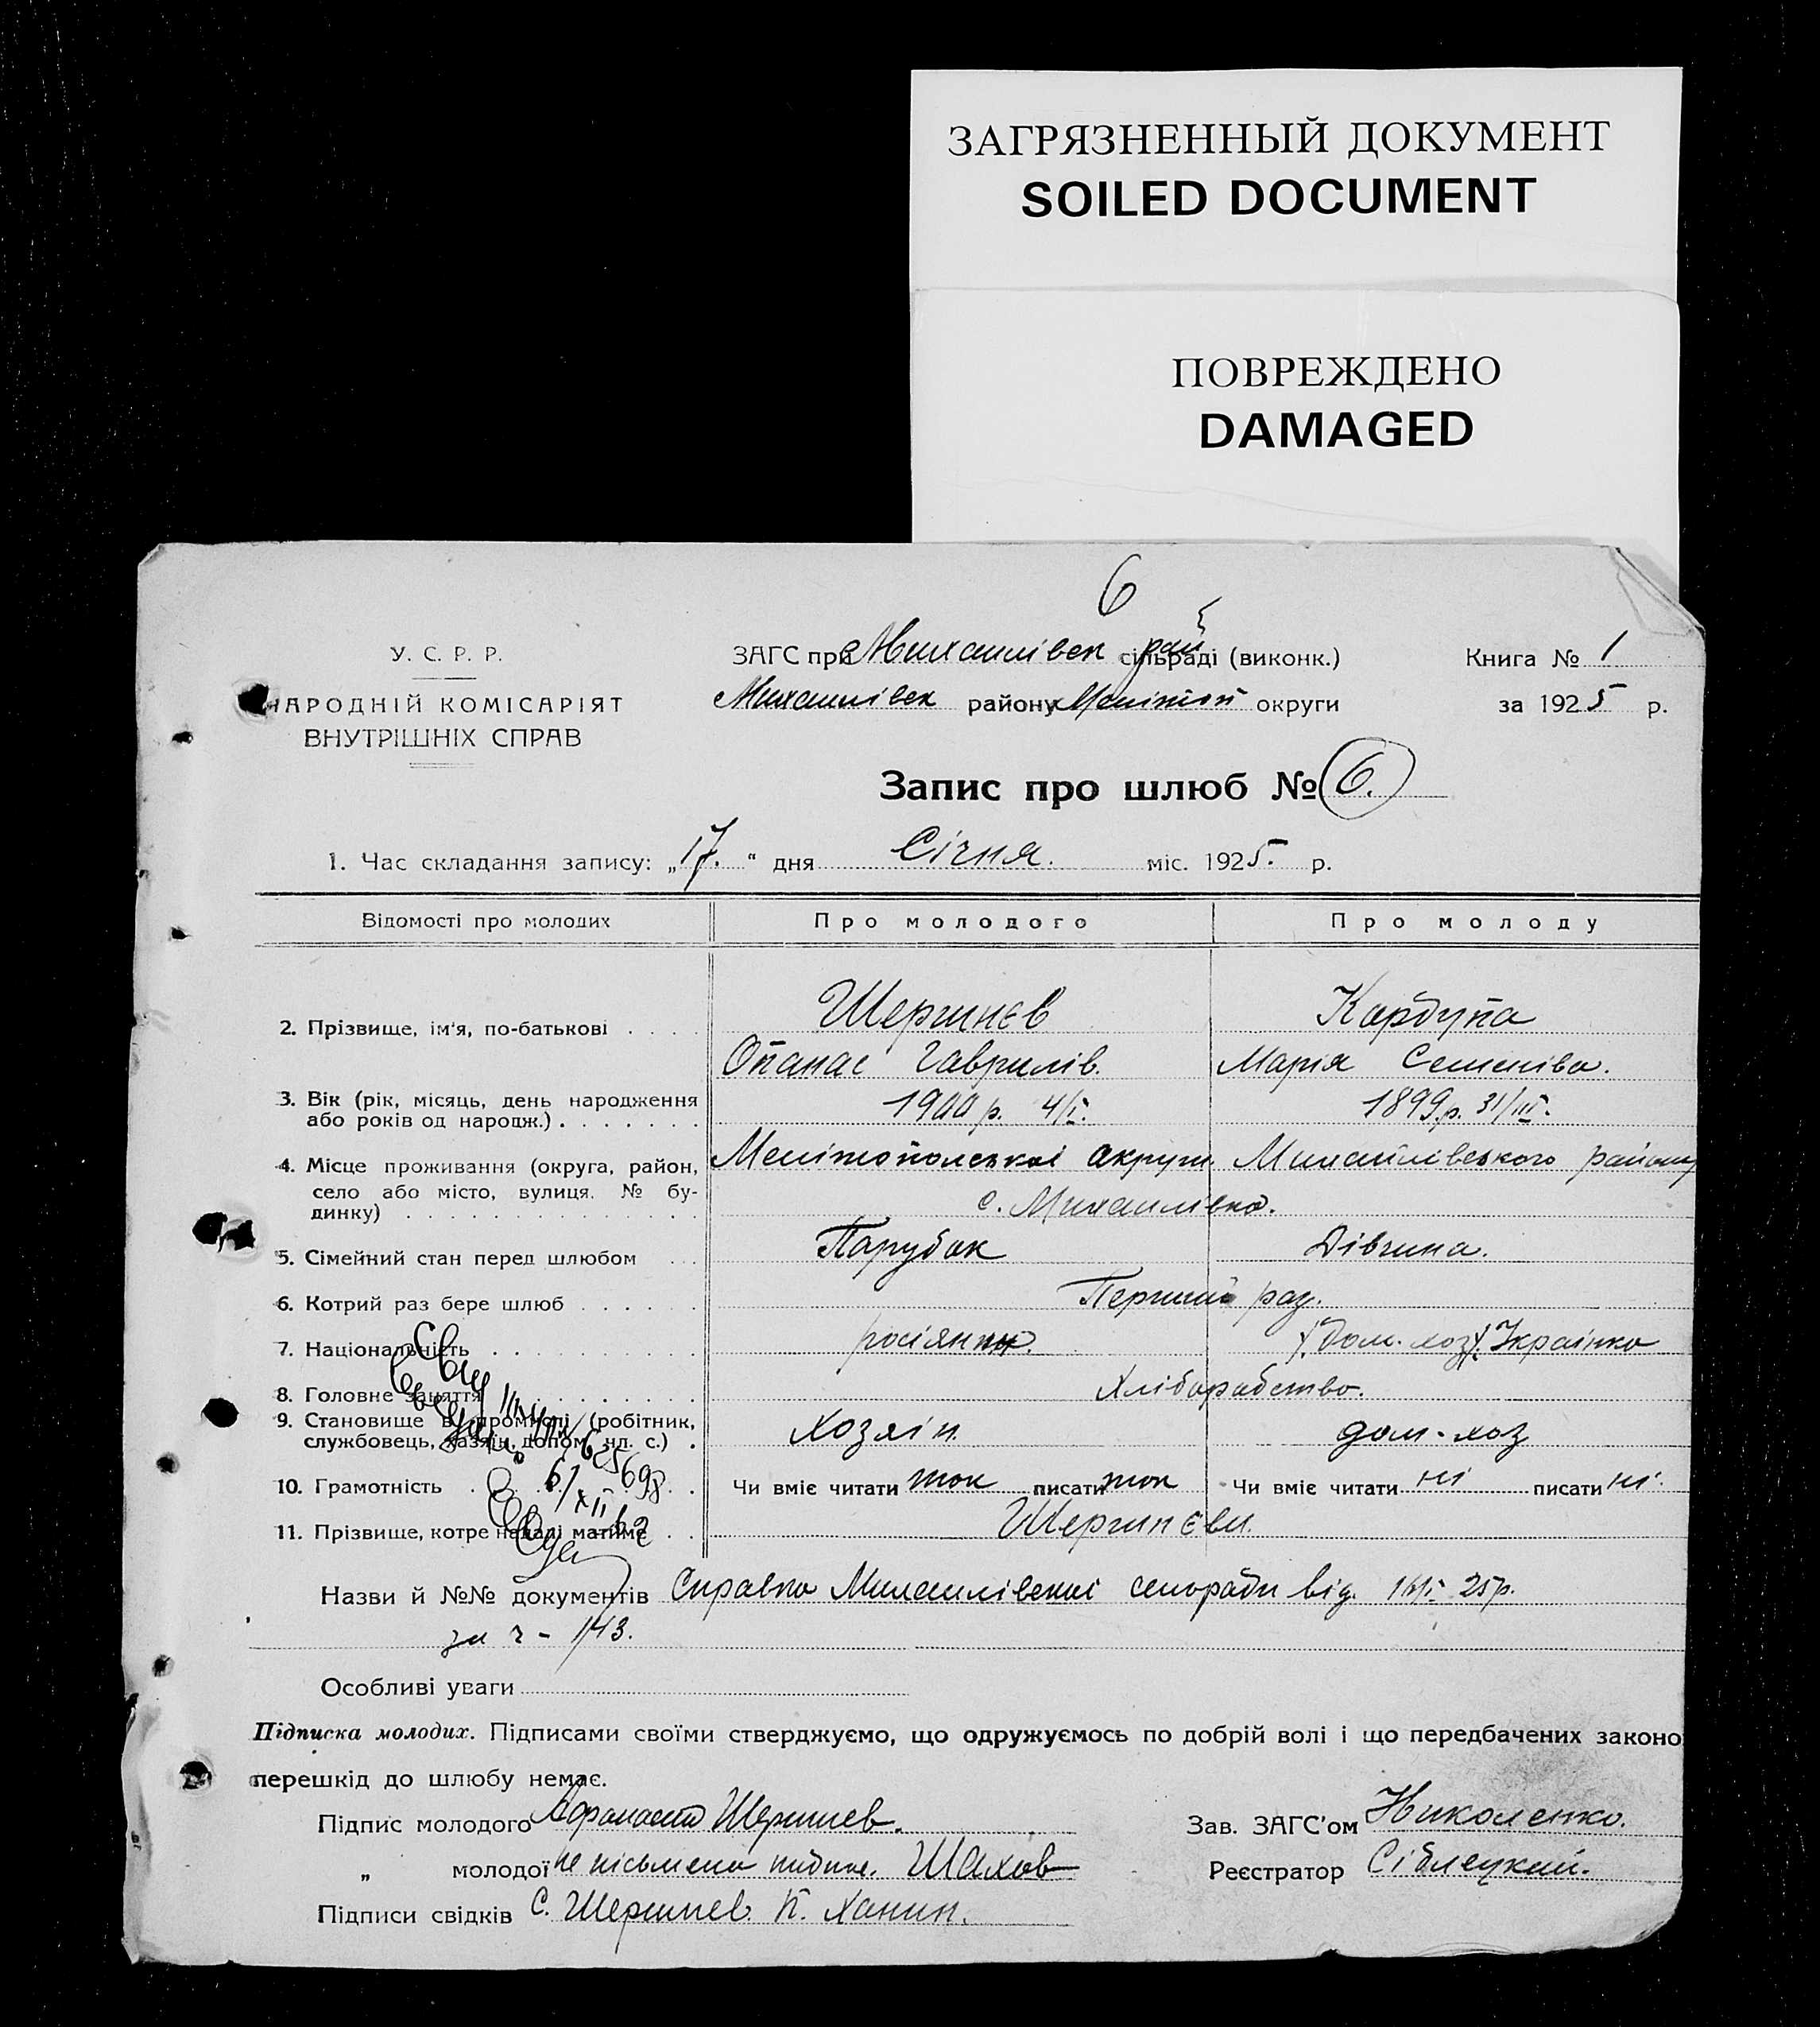 ЗАГРЯЗНЕННЫЙ ДОКУМЕНТ
SOILED DOCUMENT
ПОВРЕЖДЕНО
DAMAGED
6
У. С. Р. Р.
НАРОДНІЙ КОМІСАРІЯТ
ВНУТРІШНІХ СПРАВ
ЗАГС при Михайлівск рай сільраді (виконк.)
Михайлівск району Мелітоп округи
Книга № 1
за 1925 р.
Запис про шлюб № 6.
1. Час складання запису: „17.“ дня Січня. міс. 1925. р.
Відомості про молодих Про молодого Про молоду
2. Прізвище, ім'я, по-батькові . . . . Шершнєв Карбупа
Опанас Гаврилів. Марія Семенівa.
3. Вік (рік, місяць, день народження 1900 р. 4/I. 1899 р. 31/III.
або років од народж.) . . . . . . .
4. Місце проживання (округа, район, Мелітопольської округи. Михайлівського району
село або місто, вулиця. № бу-
динку) . . . . . . . . . . . . . . с. Михайлівка.
5. Сімейний стан перед шлюбом . . . Парубок Дівчина.
6. Котрий раз бере шлюб . . . . . . Перший раз.
7. Національність . . . . . . . . . . росіянин. Дом. хоз. Українка
8. Головне заняття . . . . . . . Хліборобство.
9. Становище в промислі (робітник, Хозяін. дом-хоз
службовець, хазяїн, допом. чл. с.) .
10. Грамотність Чи вміє читати так писати так Чи вміє читати ні писати ні.
11. Прізвище, котре надалі матиме . . Шершнєви.
Назви й №№ документів Справка Михайлівської сельради від 25 р.
за ч - 143.
Особливі уваги
Підписка молодих. Підписами своїми стверджуємо, що одружуємось по добрій волі і що передбачених законо
перешкід до шлюбу немає.
Підпис молодого Афанасий Шершнев. Зав. ЗАГС'ом Николенко.
„ молодої не письмена Шахов Реєстратор Сіблецкий.
Підписи свідків С. Шершнев. К. Ханин.